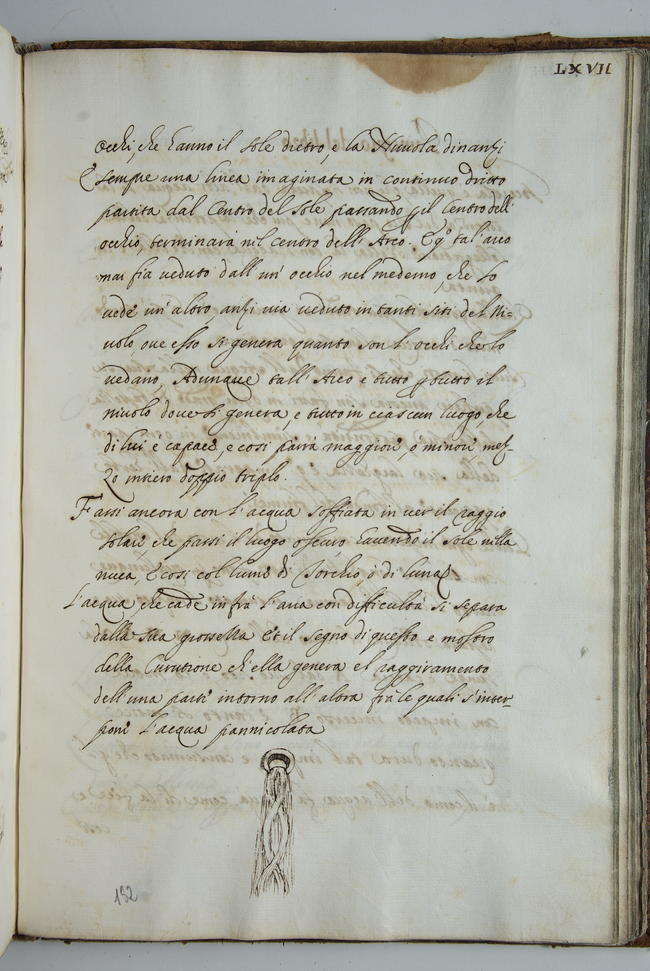 LXVII
occhi, che hanno il sole dietro, e la Nuuola dinanzi
E sempre una linea imaginata in continuo dritto
partita dal Centro del sole passando p il Centro dell'
occhio, terminarà nil centro dell'Arco. E qo tal'arco
mai fia ueduto dall'un'occhio nel medemo, che lo
uede un'altro, anzi uia ueduto in tanti siti del Nu-
uolo, oue esso si genera quanto son l'occhi che lo
uedano, Adunque tall'Arco e tutto p tutto il
niuolo doue si genera, e tutto in ciascun luogo, che
di lui è capace, e cosi parrà maggiore o minore, mez-
zo intiero doppio triplo.
Farsi ancora con l'acqua soffiata in uer il raggio
solare, che passi il luogo oscuro hauendo il Sole nilla
nuca, E cosi col lume di Torchio, ò di luna
L'acqua che cade infrà l'aria con difficoltà si separa
dalla sua grossezza Et il segno di questo e mostro
della Curutione ch'ella genera el raggiramento
dell'una parte intorno all'altra frà le quali s'inter-
pone l'acqua pannicolata
132